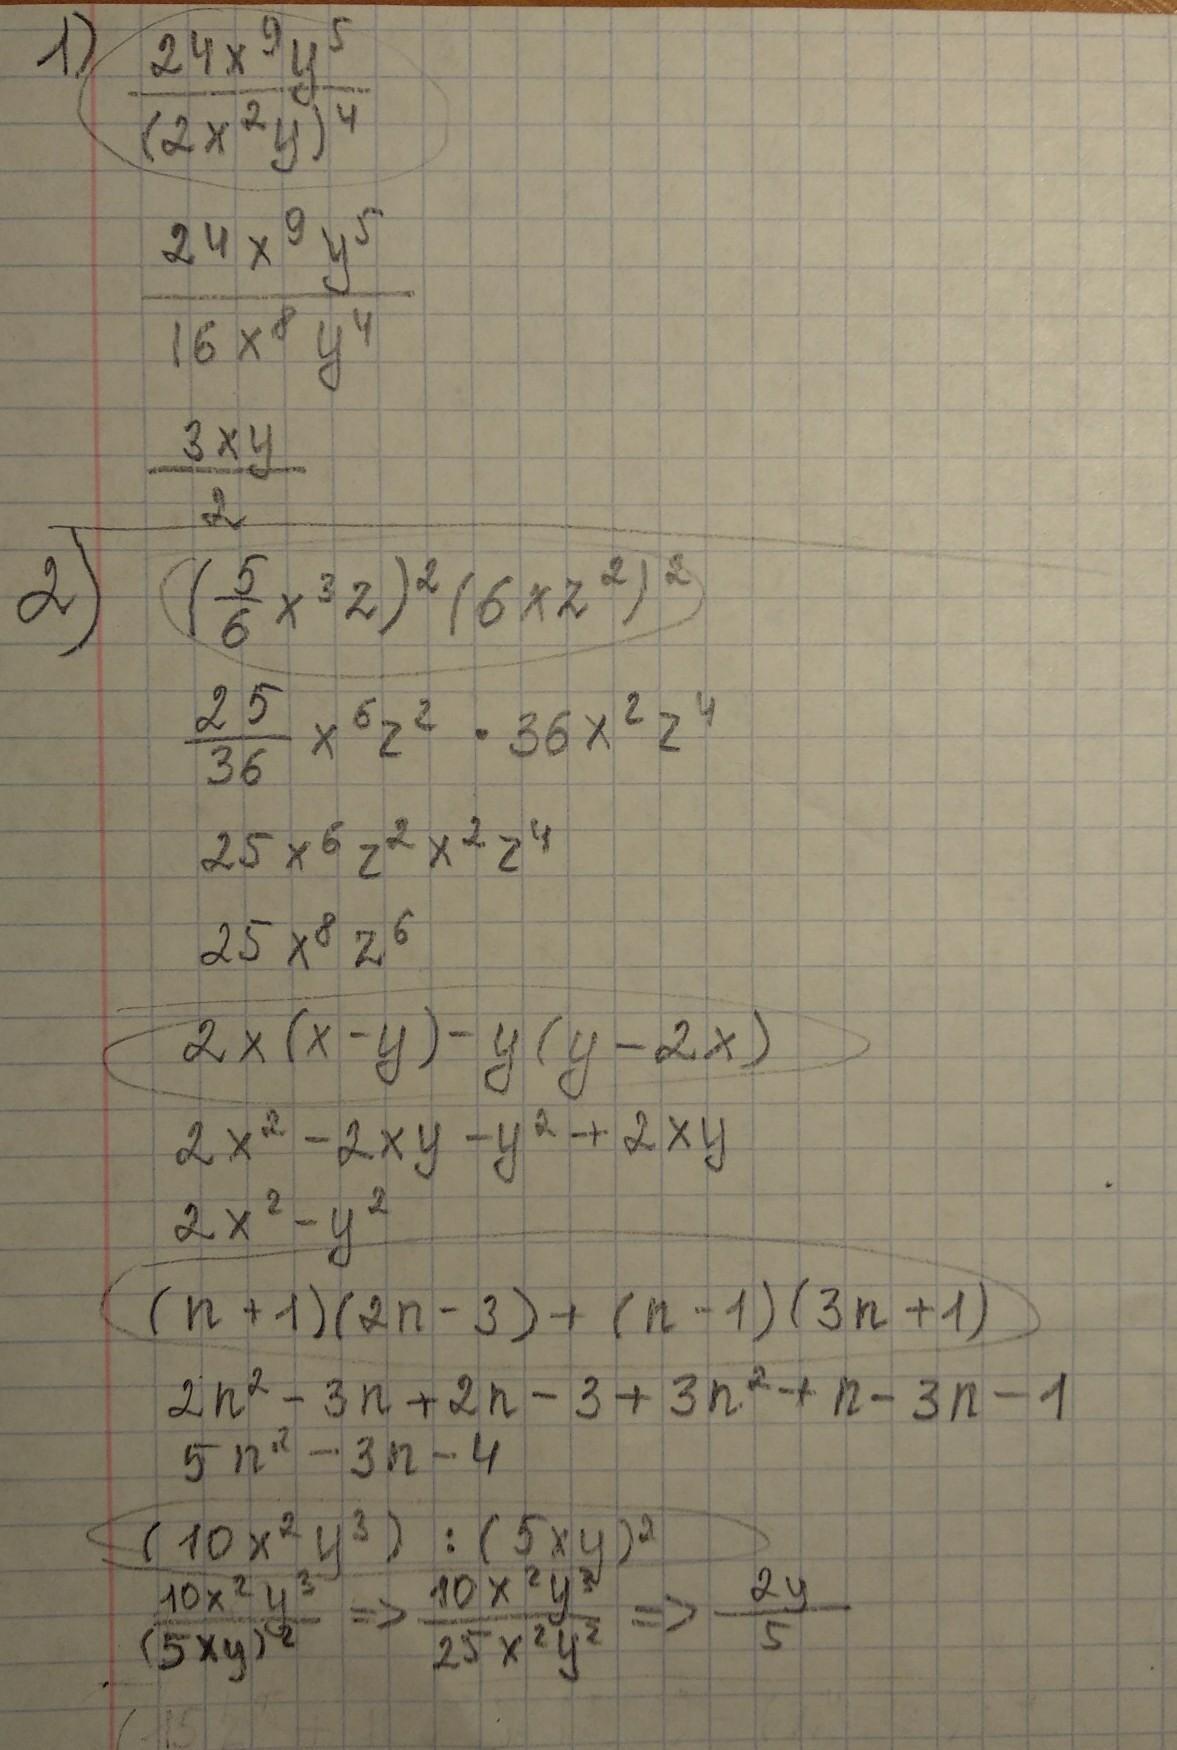 1) 24x⁹y⁵
(2x²y)⁴
24x⁹y⁵
16x⁸y⁴
3xy
2
2) (5/6 x³z)²(6xz²)²
25/36 x⁶z² · 36x²z⁴
25x⁶z²x²z⁴
25x⁸z⁶
2x(x-y)-y(y-2x)
2x²-2xy-y²+2xy
2x²-y²
(n+1)(2n-3)+(n-1)(3n+1)
2n²-3n+2n-3+3n²+n-3n-1
5n²-3n-4
(10x²y³) : (5xy)²
10x²y³/(5xy)² => 10x²y³/25x²y² => 2y/5